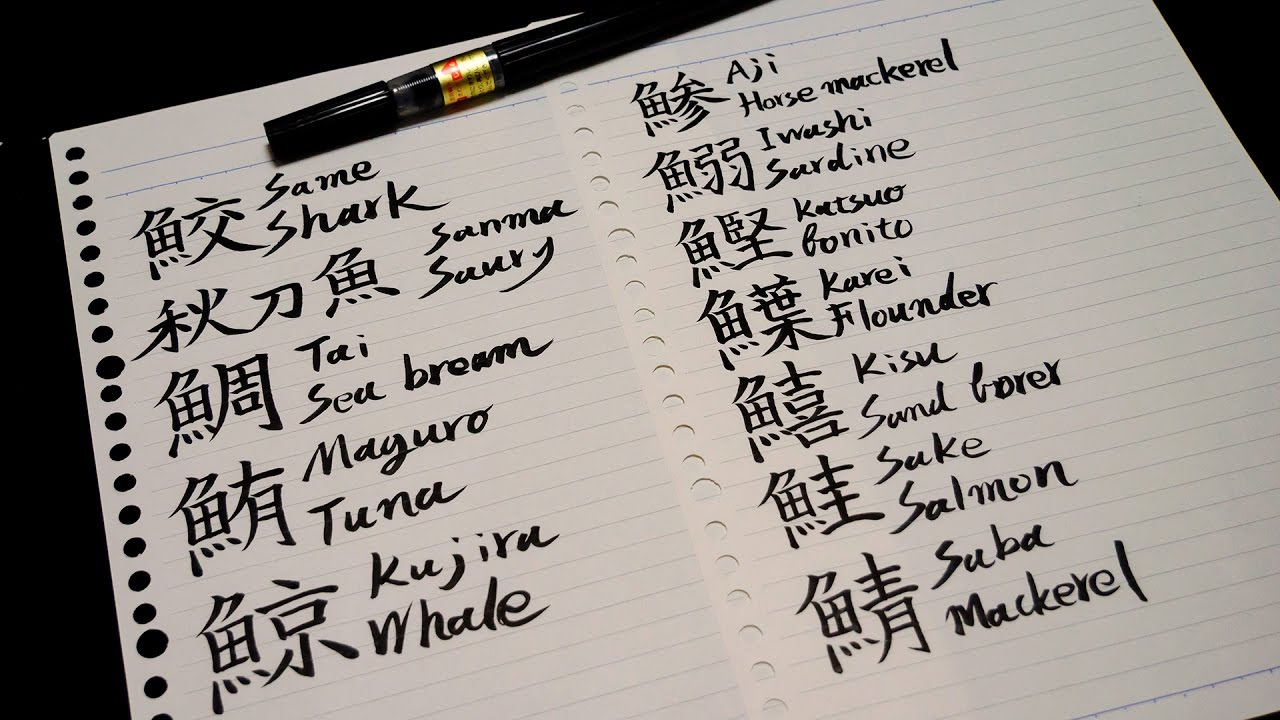 鮫 Same
Shark
秋刀魚 Sanma
Saury
鯛 Tai
Sea bream
鮪 Maguro
Tuna
鯨 Kujira
Whale
鯵 Aji
Horse mackerel
鰯 Iwashi
Sardine
鰹 Katsuo
bonito
鰈 Karei
Flounder
鱚 Kisu
Sand borer
鮭 Sake
Salmon
鯖 Saba
Mackerel